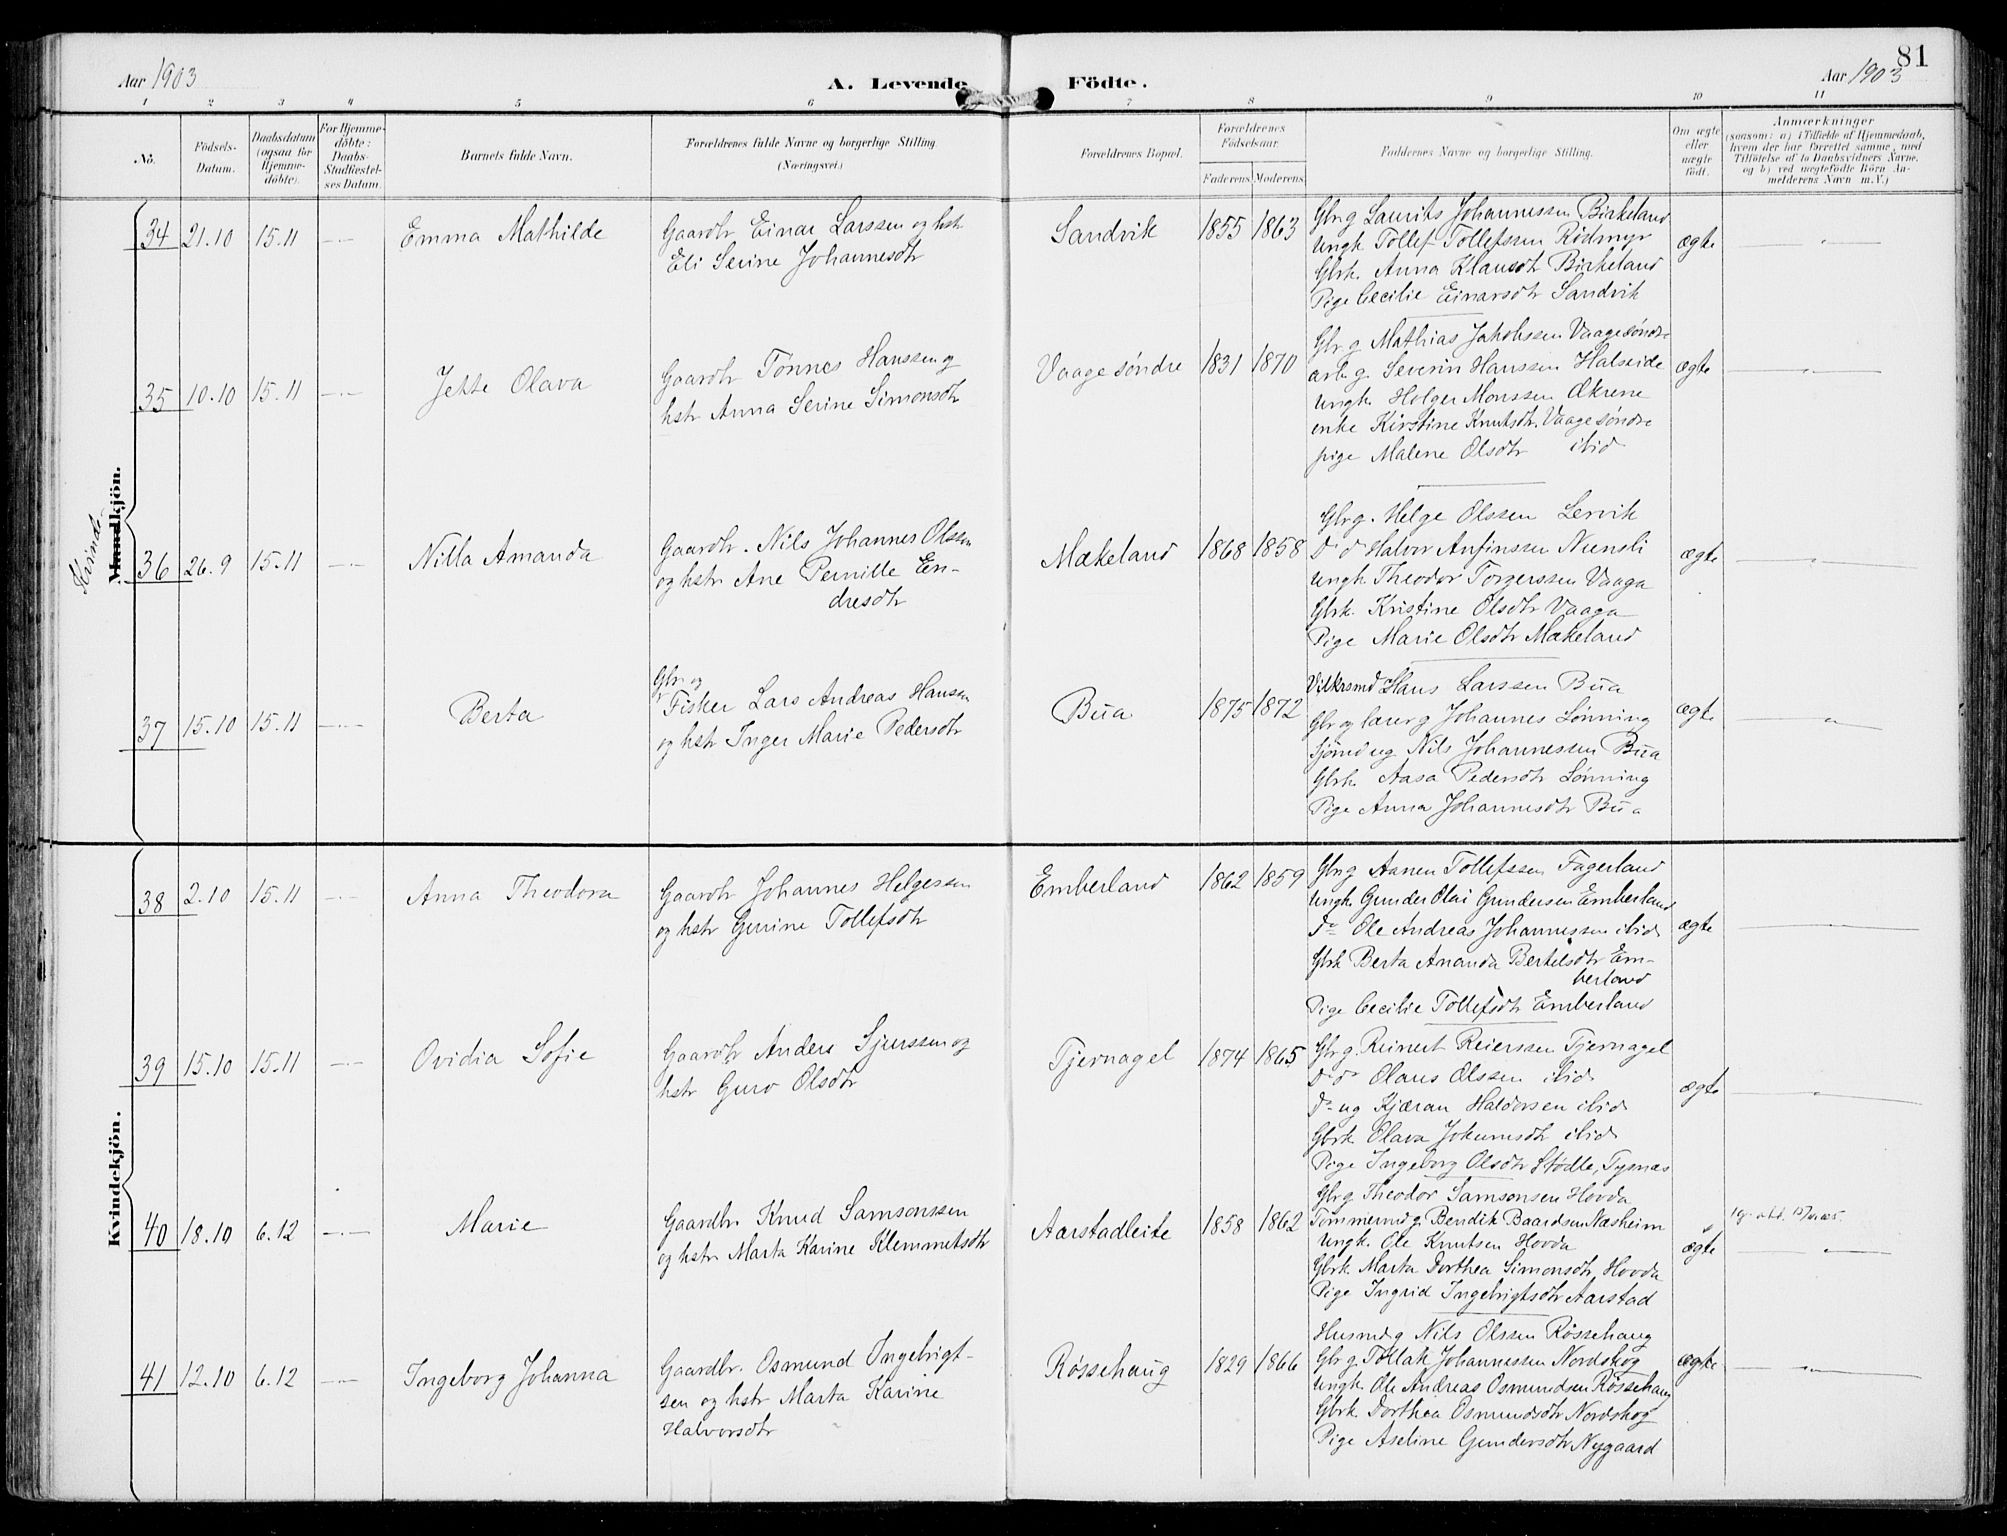 81
Aar 1903
A. Levende Födte.
Aar 1903
1 2 3 4 5 6 7 8 9 10 11
No.
Födsels-Datum.
Daabsdatum (ogsaa for Hjemme-döbte).
For Hjemme-döbte: Daabs-Stadfæstel-ses Datum.
Barnets fulde Navn.
Forældrenes fulde Navne og borgerlige Stilling (Næringsvei.)
Forældrenes Bopæl.
Forældrenes Födselsaar.
Faderens Moderens
Faddernes Navne og borgerlige Stilling.
Om ægte eller uægte födt.
Anmærkninger
(saasom: a) i Tilfælde af Hjemmedaab,
hvem der har forrettet samme, med
Tilföielse af to Daabsvidners Navne,
og b) ved uægtefödte Börn An-
melderens Navn m. V.)
Kvinde
Mandkjön.
34 21.10 15.11 Emma Mathilde
Gaardbr Einar Larssen og hst
Eli Serine Johannesdtr
Sandvik 1855 1863
Gbrg Laurits Johannessen Birkeland
Ungk Tollef Tollefssen Rødmyr
Gbrk. Anna Klausdtr Birkeland
Pige Cecilie Einarsdtr Sandvik
ægte
35 10.10 15.11 Jette Olava
Gaardbr Tønnes Hanssen og
hstr Anna Serine Simonsdtr
Vaage søndre 1831 1870
Gbr g Mathias Jakobssen Vaage søndre
arb g. Severin Hanssen Halseide
ungk. Holger Monssen Økrene
enke Kirstine Knutsdtr. Vaage søndre
pige Malene Olsdtr ibid
ægte
36 26.9 15.11 Nilla Amanda
Gaardbr. Nils Johannes Olssen
og hstr Ane Pernille En-
dresdtr
Mækeland 1868 1858
Gbrg. Helge Olssen Lervik
do do Halvor Anfinssen Nuensli
ungk Theodor Torgerssen Vaaga
Gbrk. Kristine Olsdtr Vaaga
Pige Marie Olsdtr Mækeland
ægte
37 15.10 15.11 Berta
Gbr og
Fisker Lars Andreas Hansen
og hstr Inger Marie Pedersdtr
Bua 1875 1872
Vilkrsmd Hans Larssen Bua
Gbr og lærer g Johannes Lønning
Sjømd ug Nils Johannessen Bua
Gbrk Aasa Pedersdtr Lønning
Pige Anna Johannesdtr Bua
ægte
Kvindekjön.
38 2.10 15.11 Anna Theodora
Gaardbr Johannes Helgessen
og hstr Gurine Tollefsdtr
Emberland 1862 1859
Gbrg Aanen Tollefssen Fagerland
Ungk Gunder Olai Gundersen Emberland
do Ole Andreas Johannessen ibid.
Gbrk Berta Amanda Bertelsdtr Em-
berland
Pige Cecilie Tollefsdtr Emberland
ægte
39 15.10 15.11 Ovidia Sofie
Gaardbr Anders Sjurssen og
hstr Guro Olsdtr
Tjernagel 1874 1865
Gbr g. Reinert Reierssen Tjernagel
do do Olaus Olssen ibid.
do ug Kjæran Haldorsen ibid.
Gbrk Olava Johannesdtr ibid.
Pige Ingeborg Olsdtr Stødle, Tysnæs
ægte
40 18.10 6.12 Marie
Gaardbr. Knud Samsonssen
og hstr Marta Karine Klemmetsdtr
Aarstadleite 1858 1862
Gbrg Theodor Samsonsen Hovda
Tømmermd g. Bendik Baardsen Næsheim
Ungk. Ole Knutsen Hovda
Gbrk. Marta Dorthea Simonsdtr Hovda
Pige Ingrid Ingebrigtsdtr Aarstad
ægte
41 12.10 6.12 Ingeborg Johanna
Gaardbr. Osmund Ingebrigt-
sen og hstr Marta Karine
Halvorsdtr
Røssehaug 1829 1866
Husmd g Nils Olssen Røssehaug
Gbr g. Tollak Johannessen Nordskog
Ungk. Ole Andreas Osmundsen Røssehaug
Gbrk. Dorthea Osmundsdtr Nordskog
Pige Aseline Gundersdtr Nygaard
ægte